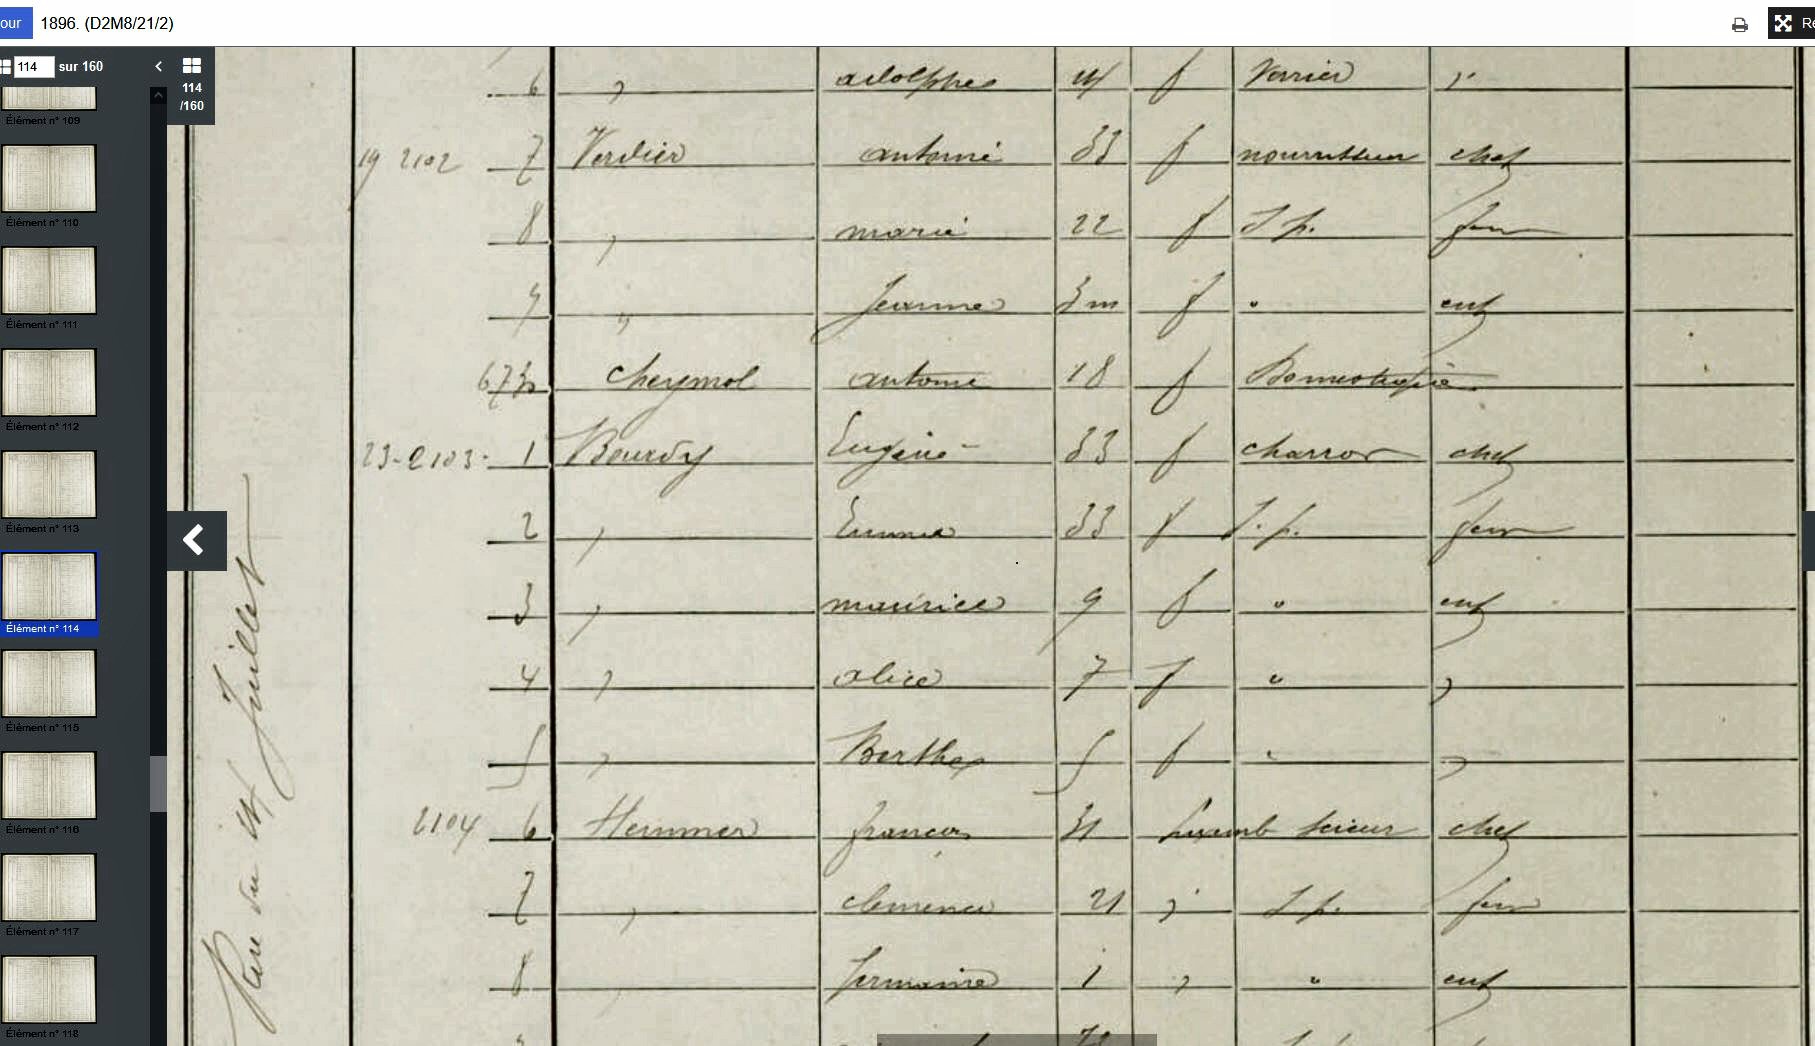 our 1896. (D2M8/21/2)
114 sur 160
114
/160
Élément n° 109
Élément n° 110
Élément n° 111
Élément n° 112
Élément n° 113
Élément n° 114
Élément n° 115
Élément n° 116
Élément n° 117
Élément n° 118
Rue du 14 Juillet
6 " adolphe f Verrier "
19 2102 7 Verdier antoine 33 f nourrisseur chef
8 " marie 22 f S. p. fem
9 " Jeanne 3 m f " enf
6730 Cheymol antoine 18 f Domestique
23 - 2103 - 1 Bourdy Eugène 33 f charron chef
2 " Emma 33 f S. p. fem
3 " maurice 9 f " enf
4 " alice 7 f " "
5 " Berthe 5 f " "
2104 6 Hemmer françois 31 Luxemb Scieur chef
7 " clemence 21 " S. p. fem
8 " Germaine 1 " " enf